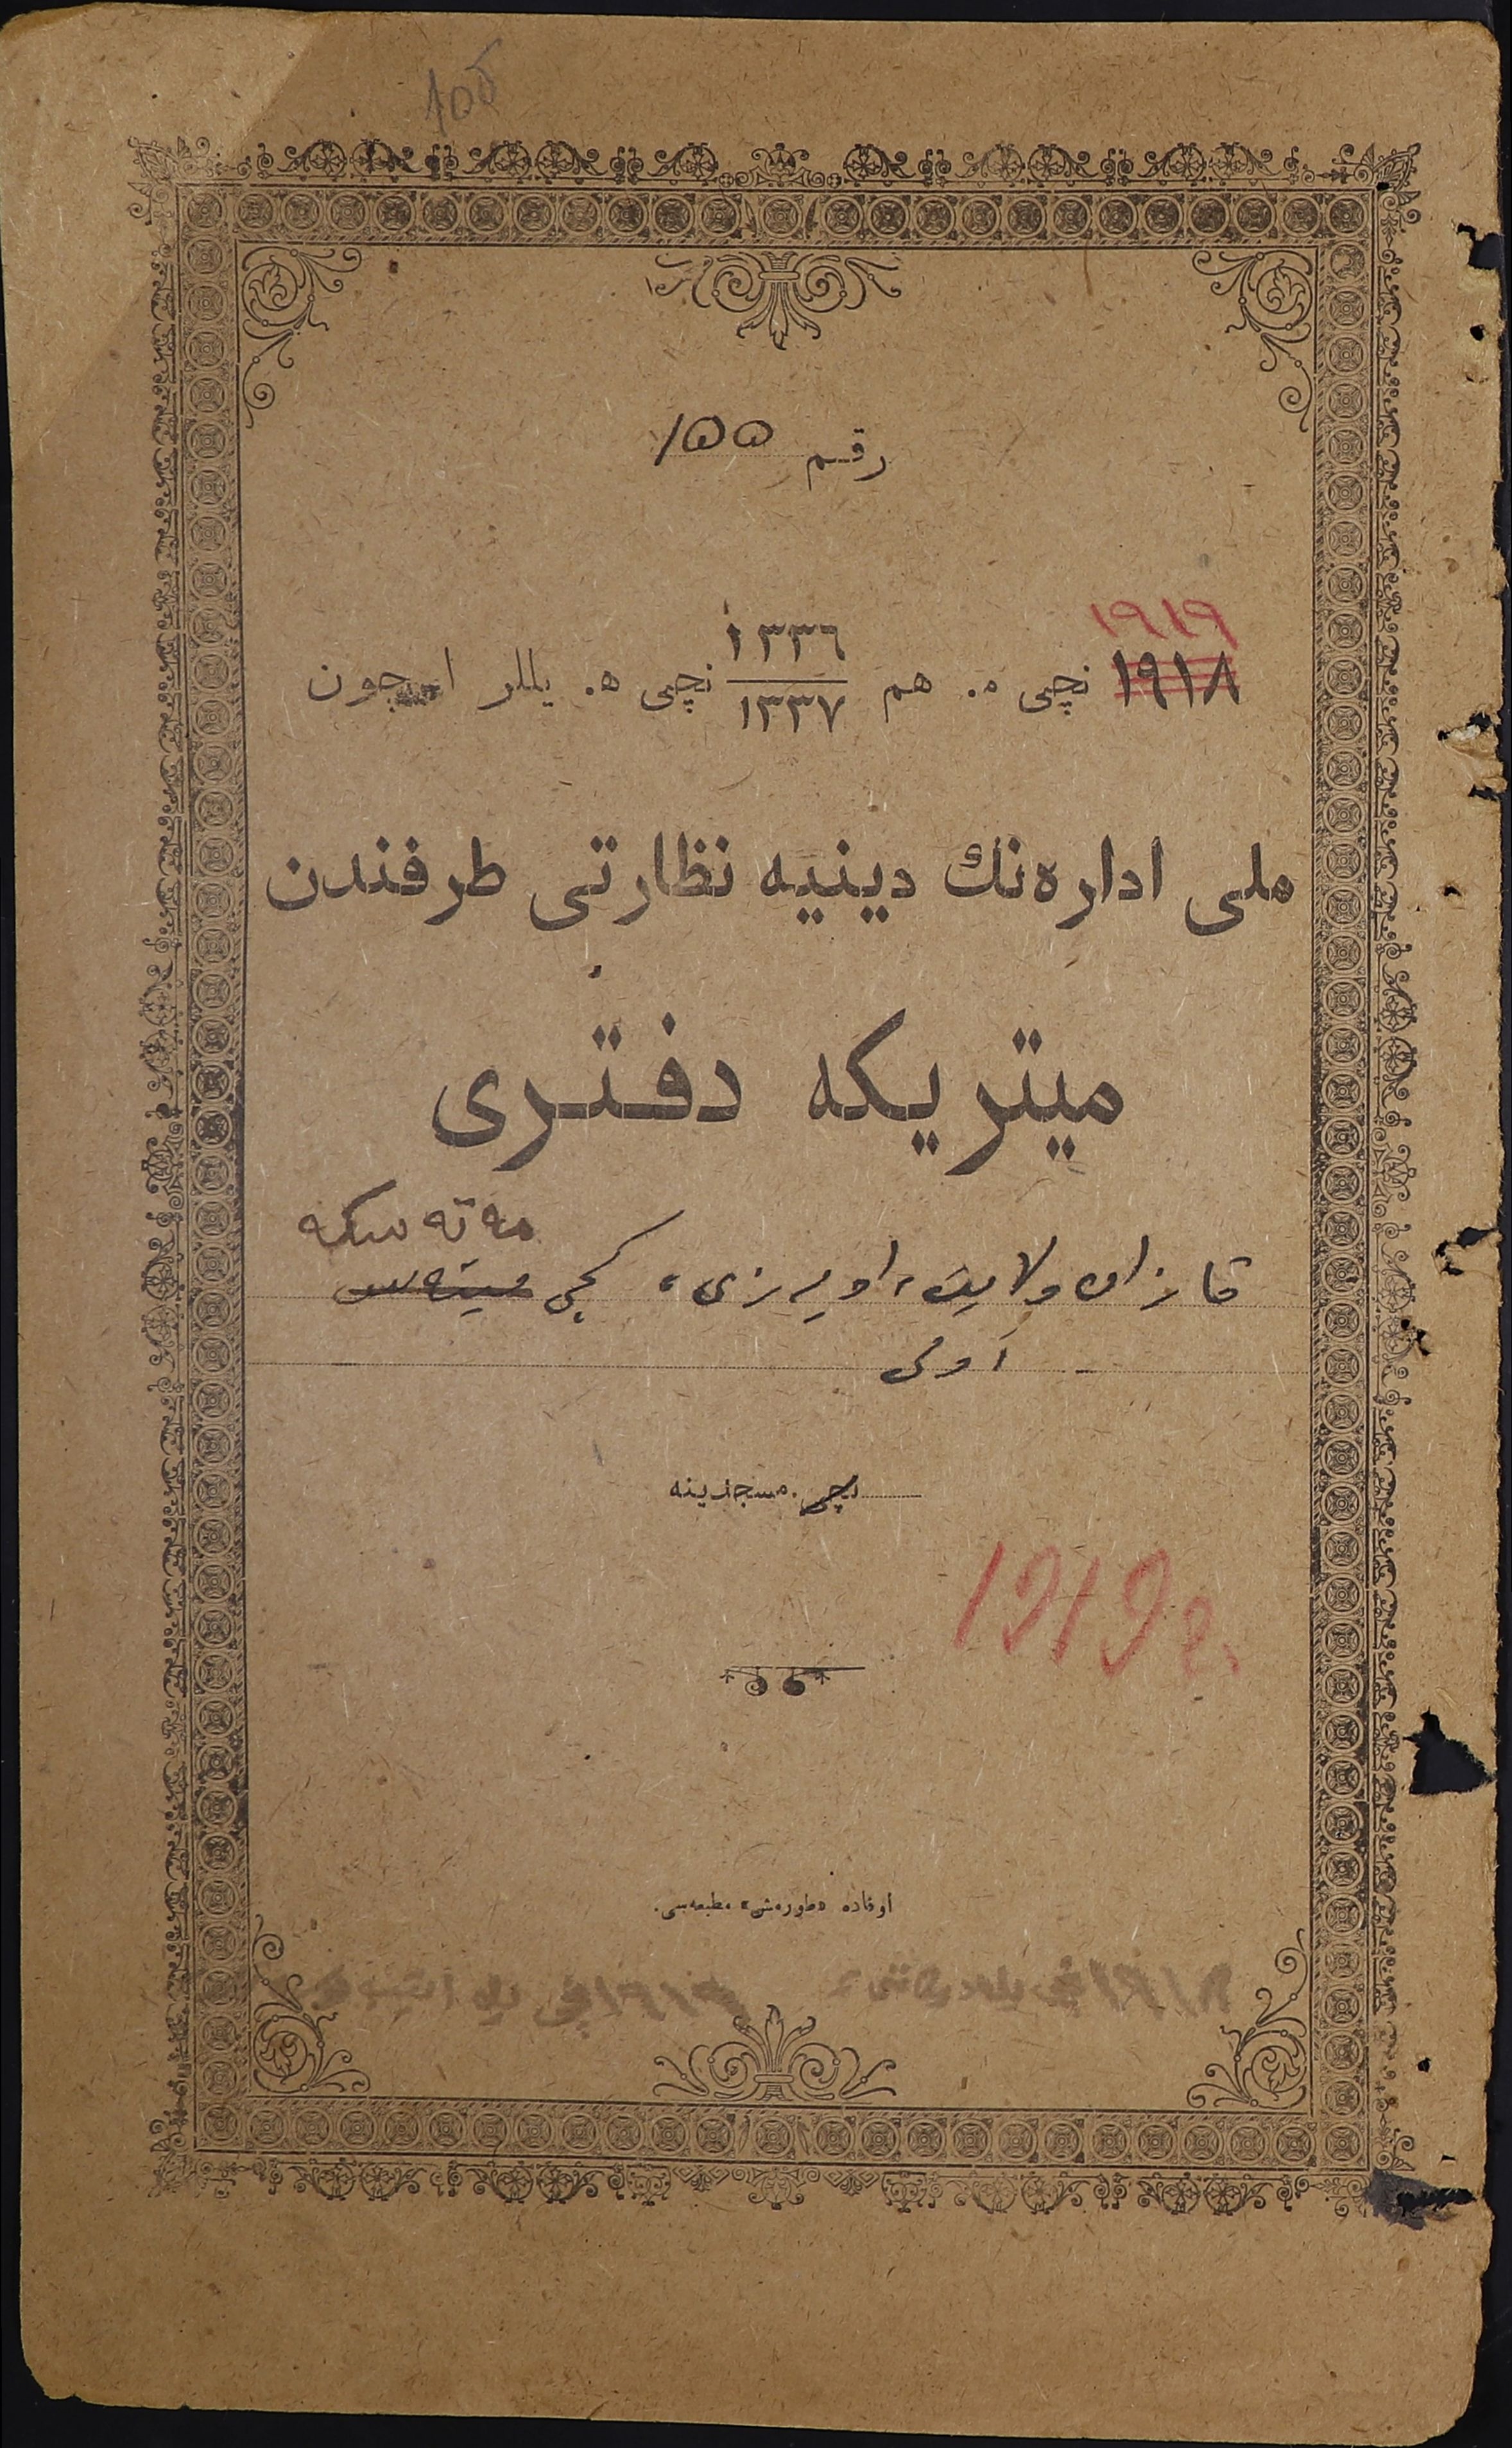 رقم ١٥٥
١٩١٩
١٩١٨ نچی ه. هم ١٣٣٦ ١٣٣٧ نچی ه. یللر اوچون
ملی اداره‌نك دینیه نظارتی طرفندن
میتریكه دفتری
مه ته سكه
قازان ولایت، اویازی، كچی
آولی
نچی مسجدینه
1919 г.
اوفاده «طورمش» مطبعه‌سی.